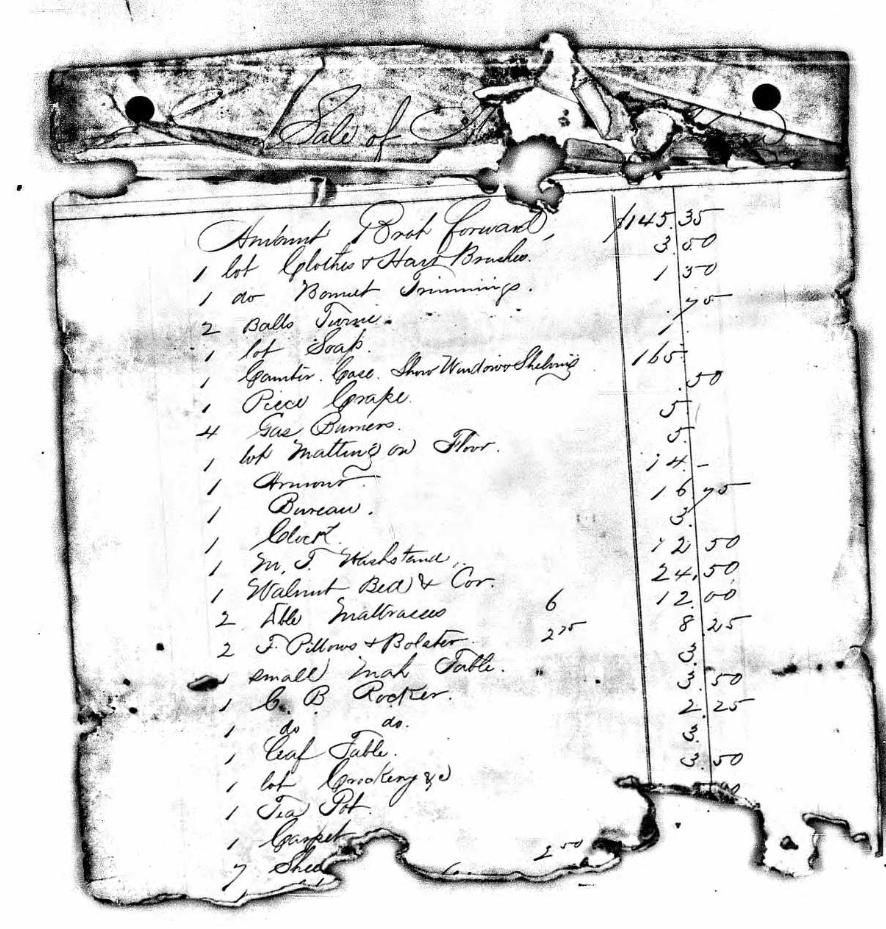 Sale of
Amount Brot forward, $145.35
1 lot Clothes & Hair Brushes. 3.50
1 do Bonnet Trimmings. 1 50
2 Balls Twine .75
1 lot Soap. 1.
1 Counter. Case. Show Window & Shelving 165-
1 Piece Crape. .50
4 Gas Burners. 5
1 lot Matting on Floor. 5.
1 Armour 14.-
1 Bureau. 16 75
1 Clock. 3.
1 M. T. Washstand, 12 50
1 Walnut Bed & Cor. 24.50
2 Dble Mattrasses 6 12.00
2 F. Pillows & Bolster. 2 75 8.25
1 small Mah Table. 3.
1 C. B Rocker. 3.50
1 do do. 2.25
1 Leaf Table. 3.
1 lot Crockery &c 3.50
1 Tea Pot.
1 Carpet
7 2 50